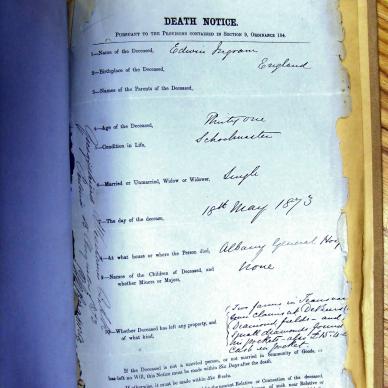 DEATH NOTICE.
PURSUANT TO THE PROVISIONS CONTAINED IN SECTION 9, ORDINANCE 104.
1—Name of the Deceased, Edwin Ingram
2—Birthplace of the Deceased, England
3—Names of the Parents of the Deceased,
4—Age of the Deceased, Thirty one
5—Condition in Life, Schoolmaster
6—Married or Unmarried, Widow or Widower, Single
7—The day of the decease, 18th May 1873
8—At what house or where the Person died, Albany General Hosp
9—Names of the Children of Deceased, and
whether Minors or Majors, None
10—Whether Deceased has left any property, and
of what kind,
Two farms in Transvaal
some claims at DeBeers
Diamond fields - and
small diamonds found
in pockets - also £15
Cash in pocket
If the Deceased is not a married person, or not married in Community of Goods,
has left no Will, this Notice must be made within Six Days after the death.
If otherwise, it must be made within Six Weeks.
nearest Relative or Connection of the deceased,